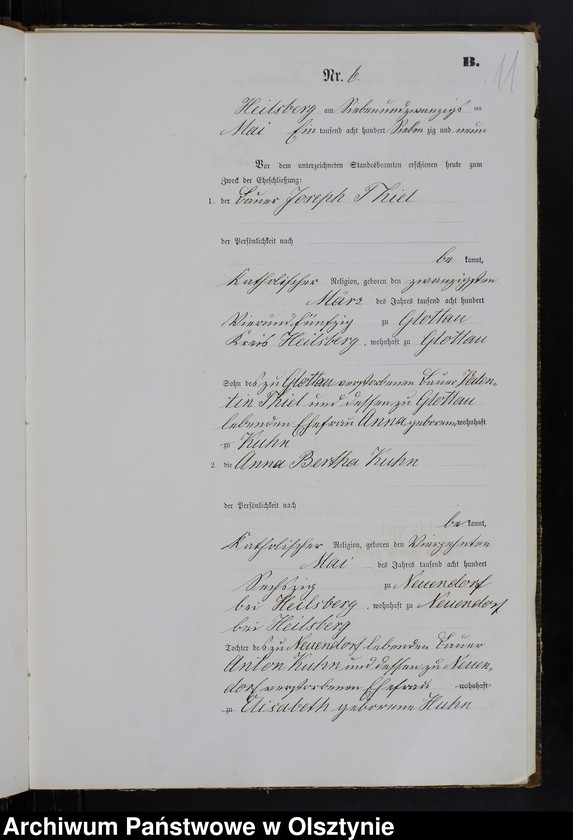 B.
11
Nr. 6.
Heilsberg am Siebenundzwanzigsten
Mai Ein tausend acht hundert Siebenzig und neun
Vor dem unterzeichneten Standesbeamten erschienen heute zum
Zweck der Eheschließung:
1. der Bauer Joseph Thiel
der Persönlichkeit nach
be kannt,
Katholischer Religion, geboren den zwanzigsten
März des Jahres tausend acht hundert
Vierundfünfzig zu Glottau
Kreis Heilsberg, wohnhaft zu Glottau
Sohn des zu Glottau verstorbenen Bauer Valen-
tin Thiel und dessen zu Glottau
lebenden Ehefrau Anna geborene wohnhaft
zu Kuhn
2. die Anna Bertha Kuhn
der Persönlichkeit nach
be kannt,
Katholischer Religion, geboren den Vierzehnten
Mai des Jahres tausend acht hundert
Sechszig zu Neuendorf
bei Heilsberg, wohnhaft zu Neuendorf
bei Heilsberg
Tochter des zu Neuendorf lebenden Bauer
Anton Kuhn und dessen zu Neuen-
dorf verstorbenen Ehefrau wohnhaft
zu Elisabeth geborene Huhn
Archiwum Państwowe w Olsztynie